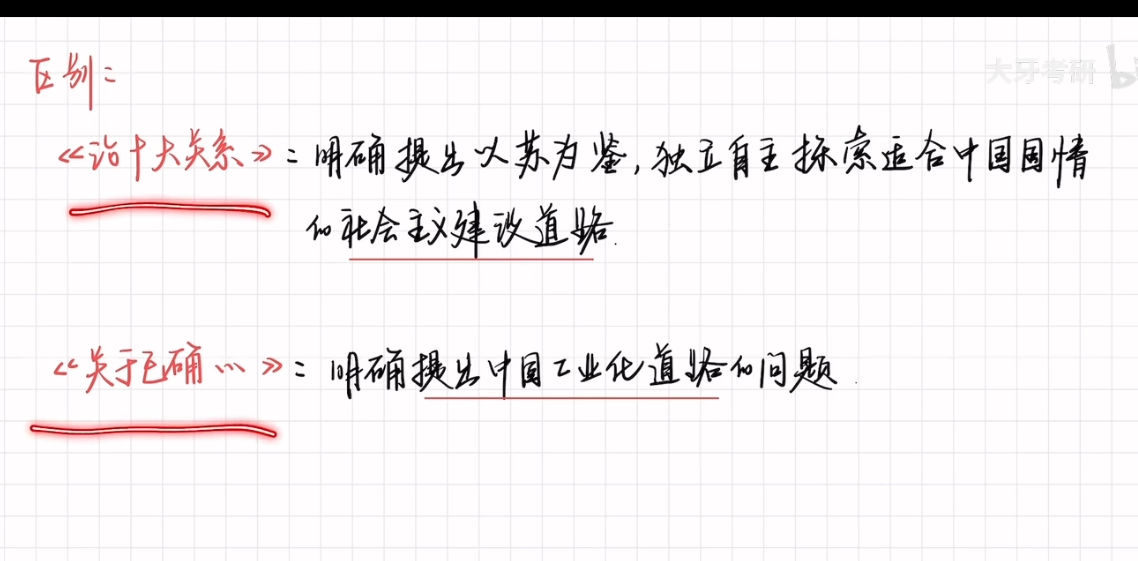 区别：
大牙考研
《论十大关系》：明确提出以苏为鉴，独立自主探索适合中国国情
的社会主义建设道路.
《关于正确…》：明确提出中国工业化道路的问题.